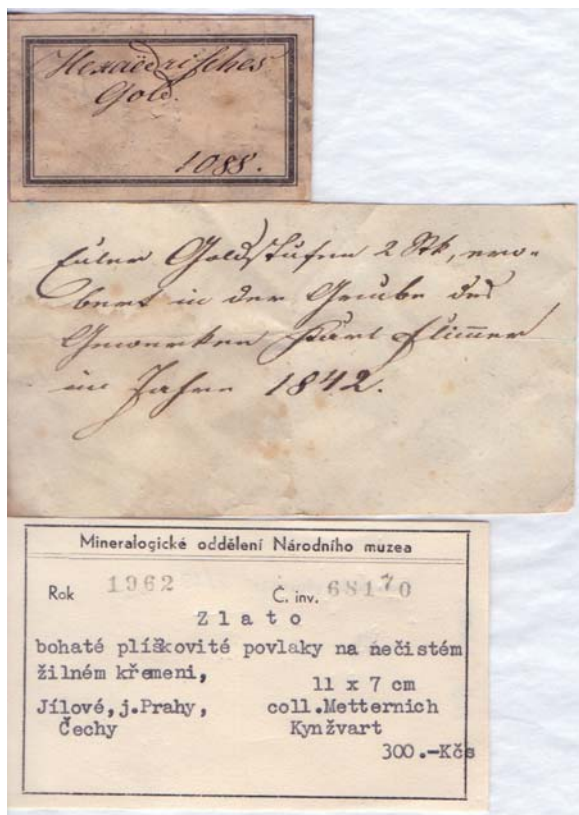 Hexaëdrisches
Gold.
1088.
Euler Goldstufen 2 Stk, ero-
bert in der Grube des
Gewerken Karl
im Jahre 1842.
Mineralogické oddělení Národního muzea
Rok 1962 Č. inv. 68170
Zlato
bohaté plíškovité povlaky na nečistém
žilném křemeni,
11 x 7 cm
Jílové, j.Prahy, coll.Metternich
Čechy Kynžvart
300.-Kčs